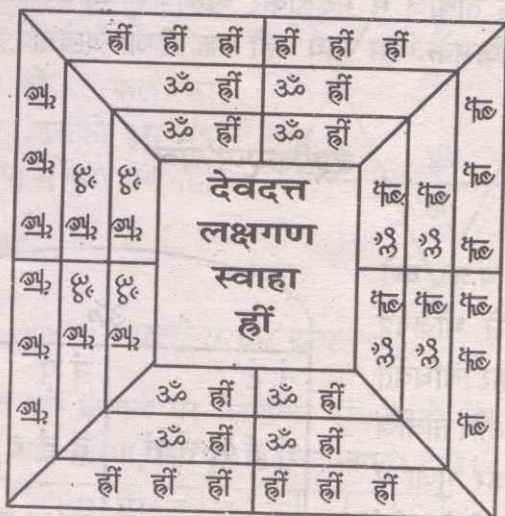 ह्रीं ह्रीं ह्रीं ह्रीं ह्रीं ह्रीं
ॐ ह्रीं ॐ ह्रीं
ॐ ह्रीं ॐ ह्रीं
ह्रीं ह्रीं ह्रीं ह्रीं ह्रीं ह्रीं
ॐ ह्रीं ॐ ह्रीं
ॐ ह्रीं ॐ ह्रीं
देवदत्त
लक्षगण
स्वाहा
ह्रीं
ह्रीं ॐ ह्रीं ॐ
ह्रीं ॐ ह्रीं ॐ
ह्रीं ह्रीं ह्रीं ह्रीं ह्रीं ह्रीं
ॐ ह्रीं ॐ ह्रीं
ॐ ह्रीं ॐ ह्रीं
ह्रीं ह्रीं ह्रीं ह्रीं ह्रीं ह्रीं